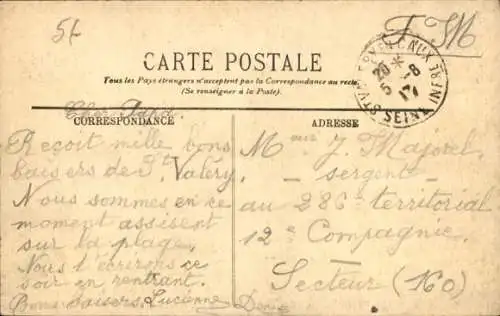 5f
F M
CARTE POSTALE
Tous les Pays étrangers n'acceptent pas la Correspondance au recto
(Se renseigner à la Poste).
ST VALERY EN CAUX
SEINE INFRE
20 *
5 - 8
17
Cher Papa
CORRESPONDANCE
Reçoit mille bons
baisers de St Valéry
Nous sommes en ce
moment assisent
sur la plage,
Nous t'écrirons ce
soir en rentrant.
Bons baisers, Lucienne Denis
ADRESSE
Meur J. Majorel
sergent
au 286e territorial
12e Compagnie.
Secteur (160)